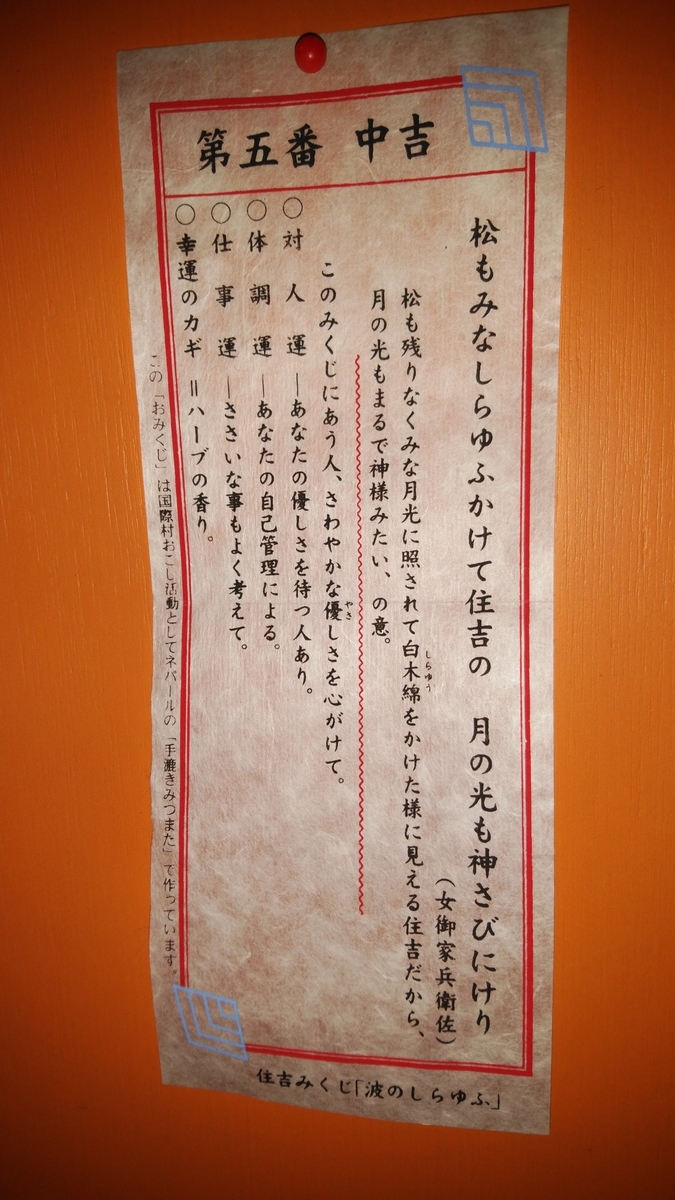 第五番 中吉
松もみなしらゆふかけて住吉の 月の光も神さびにけり
(女御家兵衛佐)
松も残りなくみな月光に照されて白木綿をかけた様に見える住吉だから、
しらゆう
月の光もまるで神様みたい、の意。
このみくじにあう人、さわやかな優しさを心がけて。
やさ
○対人運―あなたの優しさを待つ人あり。
○体調運―あなたの自己管理による。
○仕事運―ささいな事もよく考えて。
○幸運のカギ=ハーブの香り。
この「おみくじ」は国際村おこし活動としてネパールの「手漉きみつまた」で作っています。
住吉みくじ「波のしらゆふ」